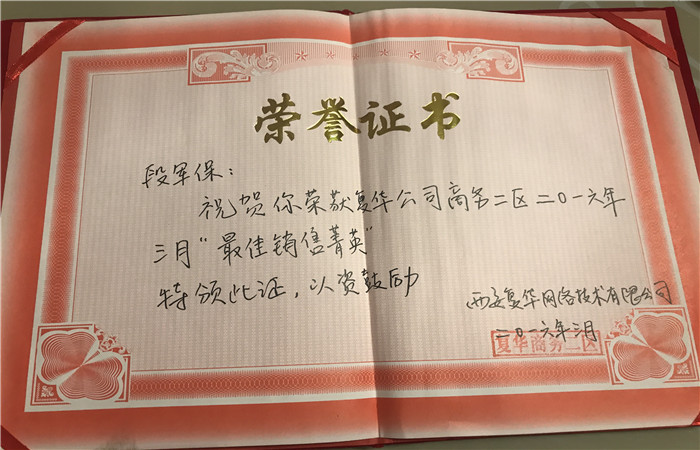 荣誉证书
段军保：
祝贺你荣获复华公司商务二区二〇一六年
三月“最佳销售菁英”
特颁此证，以资鼓励
西安复华网络技术有限公司
二〇一六年三月
复华商务二区